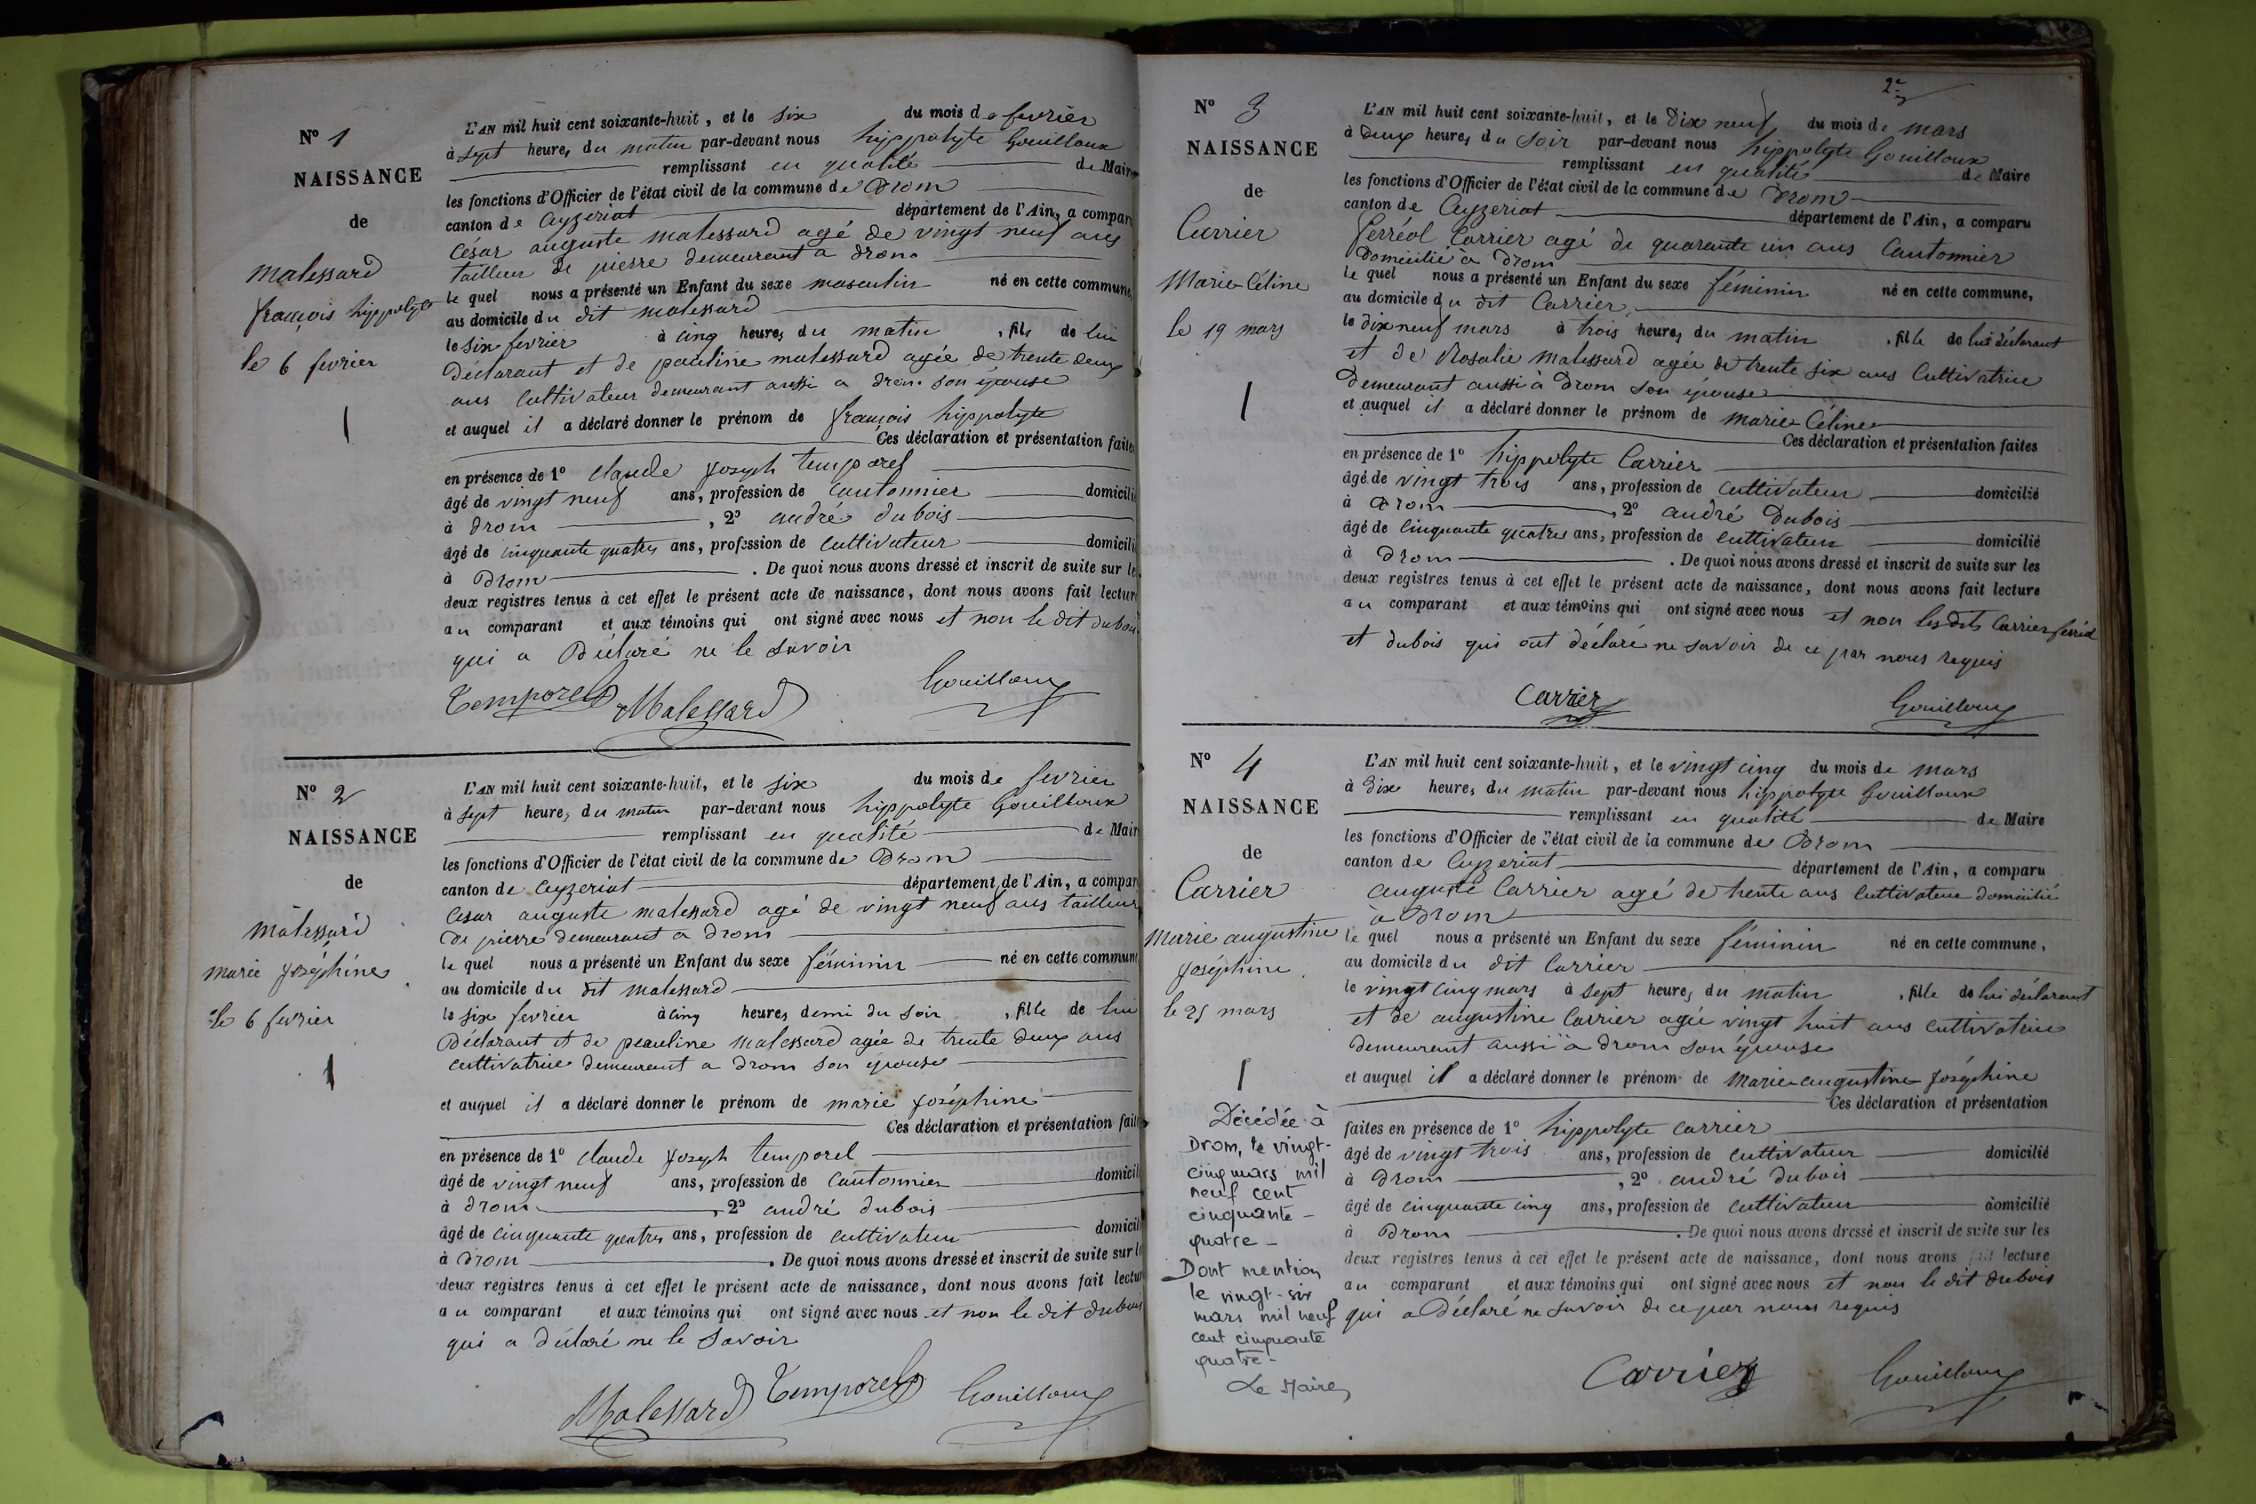 N° 1
NAISSANCE
de
Malessard
françois hippolyte
le 6 fevrier
L'AN mil huit cent soixante-huit, et le six du mois de fevrier
à sept heures du matin par-devant nous hippolyte Gouilloux
remplissant en qualité de Maire
les fonctions d'Officier de l'état civil de la commune de Drom
canton de Ceyzeriat département de l'Ain, a compar
César auguste Malessard agé de vingt neuf ans
tailleur de pierre demeurant a drom
le quel nous a présenté un Enfant du sexe masculin né en cette commune,
au domicile du dit malessard
le six fevrier à cinq heures du matin, fils de lui
déclarant et de pauline malessard agée de trente deux
ans cultivateur demeurant aussi a drom son épouse
et auquel il a déclaré donner le prénom de françois hippolyte
Ces déclaration et présentation faites
en présence de 1° claude joseph temporel
âgé de vingt neuf ans, profession de cantonnier domicilié
à drom, 2° andré dubois
âgé de cinquante quatres ans, profession de cultivateur domicilié
à Drom. De quoi nous avons dressé et inscrit de suite sur les
deux registres tenus à cet effet le présent acte de naissance, dont nous avons fait lecture
au comparant et aux témoins qui ont signé avec nous et non le dit dubois
qui a Déclaré ne le savoir
Temporel Malessard Gouilloux
N° 2
NAISSANCE
de
malessard
marie joséphine
le 6 fevrier
L'AN mil huit cent soixante-huit, et le six du mois de fevrier
à sept heures du matin par-devant nous hippolyte Gouilloux
remplissant en qualité de Mair
les fonctions d'Officier de l'état civil de la commune de Drom
canton de Ceyzeriat département de l'Ain, a compar
César auguste malessard agé de vingt neuf ans tailleur
de pierre demeurant a drom
le quel nous a présenté un Enfant du sexe féminin né en cette commune
au domicile du dit malessard
le six fevrier à cinq heures demi du soir, fille de lui
Déclarant et de peauline malessard agée de trente deux ans
cultivatrice demeurant a drom son épouse
et auquel il a déclaré donner le prénom de marie joséphine
Ces déclaration et présentation fait
en présence de 1° claude joseph temporel
âgé de vingt neuf ans, profession de cantonnier domicil
à drom, 2° andré dubois
âgé de cinquante quatres ans, profession de cultivateur domicil
à Drom. De quoi nous avons dressé et inscrit de suite sur le
deux registres tenus à cet effet le présent acte de naissance, dont nous avons fait lectur
au comparant et aux témoins qui ont signé avec nous et non le dit dubois
qui a déclaré ne le savoir
Malessard Temporel Gouilloux
2e
N° 3
NAISSANCE
de
Carrier
Marie Céline
le 19 mars
L'AN mil huit cent soixante-huit, et le Dix neuf du mois de mars
à deux heures du soir par-devant nous hippolyte Gouilloux
remplissant en qualité de Maire
les fonctions d'Officier de l'état civil de la commune de Drom
canton de Ceyzeriat département de l'Ain, a comparu
ferréol Carrier agé de quarante un ans Cantonnier
domicilié a Drom
le quel nous a présenté un Enfant du sexe féminin né en cette commune,
au domicile du dit Carrier,
le dix neuf mars à trois heures du matin, fille de lui déclarant
et de Rosalie malessard agée de trente six ans Cultivatrice
Demeurant aussi à Drom son épouse
et auquel il a déclaré donner le prénom de marie Céline
Ces déclaration et présentation faites
en présence de 1° hippolyte Carrier
âgé de vingt trois ans, profession de cultivateur domicilié
à Drom, 2° andré Dubois
âgé de Cinquante quatres ans, profession de cultivateur domicilié
à Drom. De quoi nous avons dressé et inscrit de suite sur les
deux registres tenus à cet effet le présent acte de naissance, dont nous avons fait lecture
au comparant et aux témoins qui ont signé avec nous et non les dits Carrier ferréol
et dubois qui ont déclaré ne savoir de ce par nous requis
Carrier Gouilloux
N° 4
NAISSANCE
de
Carrier
Marie augustine
joséphine
le 25 mars
L'AN mil huit cent soixante-huit, et le vingt cinq du mois de mars
à dix heures du matin par-devant nous hippolyte Gouilloux
remplissant en qualité de Maire
les fonctions d'Officier de l'état civil de la commune de Drom
canton de Ceyzeriat département de l'Ain, a comparu
auguste Carrier agé de trente ans cultivateur domicilié
à Drom
le quel nous a présenté un Enfant du sexe féminin né en cette commune,
au domicile du dit Carrier
le vingt cinq mars à sept heures du matin, fille de lui déclarant
et de augustine Carrier agée vingt huit ans cultivatrice
demeurant aussi a drom son épouse
et auquel il a déclaré donner le prénom de Marie augustine Joséphine
Ces déclaration et présentation
faites en présence de 1° hippolyte Carrier
âgé de vingt trois ans, profession de cultivateur domicilié
à Drom, 2° andré dubois
âgé de cinquante cinq ans, profession de cultivateur domicilié
à Drom. De quoi nous avons dressé et inscrit de suite sur les
deux registres tenus à cet effet le présent acte de naissance, dont nous avons fait lecture
au comparant et aux témoins qui ont signé avec nous et non le dit dubois
qui a Déclaré ne savoir de ce par nous requis
Carrier Gouilloux
Décédée à
Drom, le vingt-
cinq mars mil
neuf cent
cinquante-
quatre -
Dont mention
le vingt-six
mars mil neuf
cent cinquante
quatre-
Le Maire,